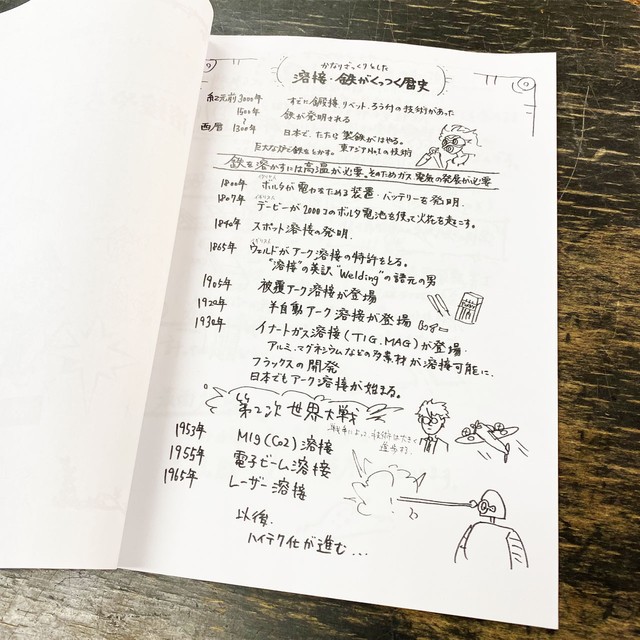 かなりざっくりとした
溶接・鉄がくっつく歴史
紀元前3000年 すでに鍛接、リベット、ろう付の技術があった
1500年 鉄が発明される
〜
西暦 1300年 日本で、たたら製鉄がはやる。
巨大な炉で鉄をとかす。東アジアNo.1の技術
鉄を溶かすには高温が必要。そのためガス電気の発展が必要
イタリア人
1800年 ボルタが電力をためる装置・バッテリーを発明.
イギリス人
1807年 デービーが2000コのボルタ電池を使って火花を起こす。
1840年 スポット溶接の発明.
イギリス人
1865年 ウェルドがアーク溶接の特許をとる。
"溶接"の英訳"Welding"の語元の男
1905年 被覆アーク溶接が登場
1920年 半自動アーク溶接が登場
1930年 イナートガス溶接(TIG.MAG)が登場.
アルミ、マグネシウムなどの多素材が溶接可能に.
フラックスの開発
日本でもアーク溶接が始まる。
第二次世界大戦
戦争によって、技術は大きく
進歩する.
1953年 MIg(Co2)溶接
1955年 電子ビーム溶接
1965年 レーザー溶接
以後.
ハイテク化が進む...